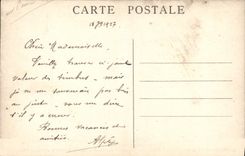 CARTE POSTALE
Chère Mademoiselle,
Veuillez trouver ci-joint
valeur des timbres - mais
je ne me souvenais pas bien
au juste - vous me direz
s'il y a erreur.
Bonnes vacances et
amitiés